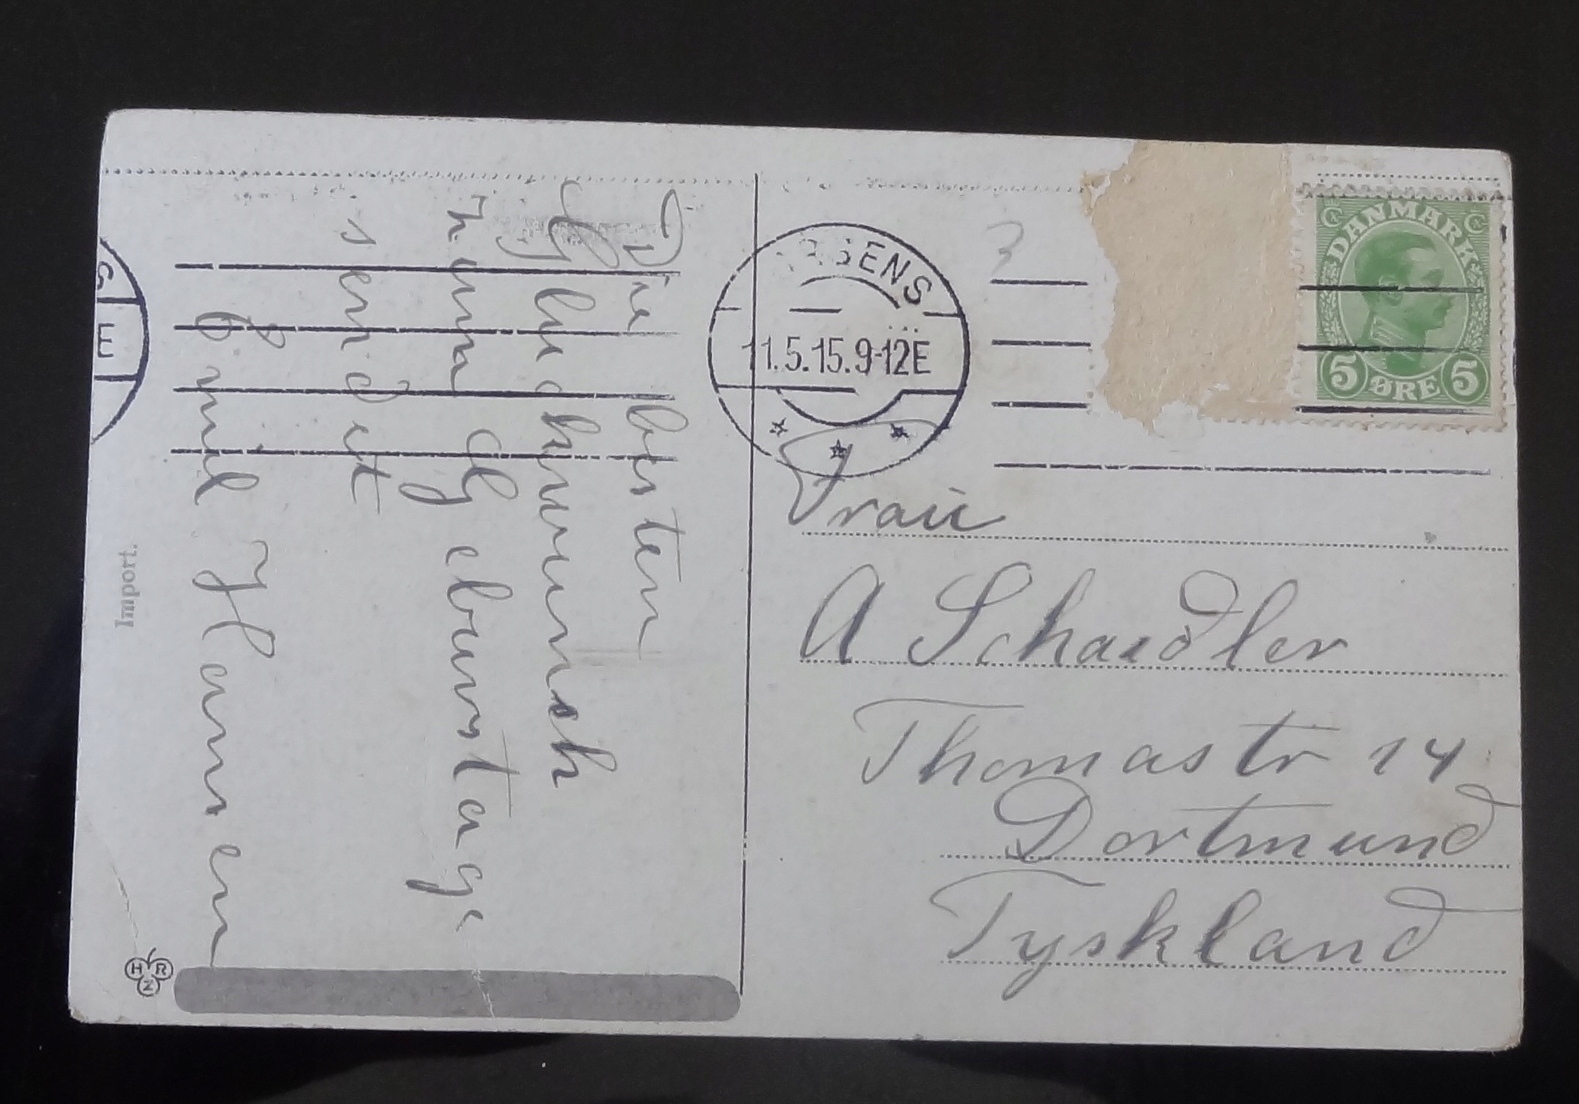 Die besten
Glückwünsch
zum Geburstage
sendet
Emil Hansen
Import.
H R Z
G
E
RSENS
11.5.15.9-12E
DANMARK
5 ØRE 5
Frau
A Schaedler
Thomastr 14
Dortmund
Tyskland